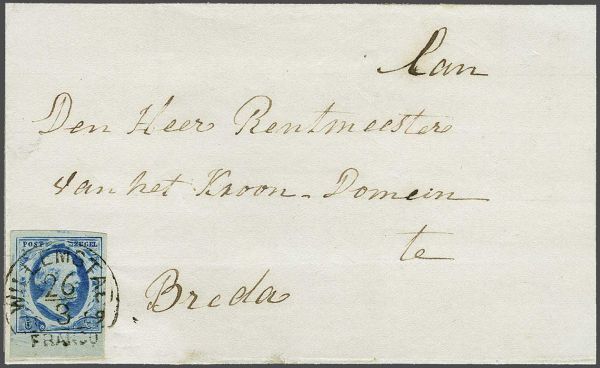 Aan
Den Heer Rentmeester
van het Kroon-Domein
te
Breda
POST ZEGEL
WILLEMSTAD
26
3
FRANCO